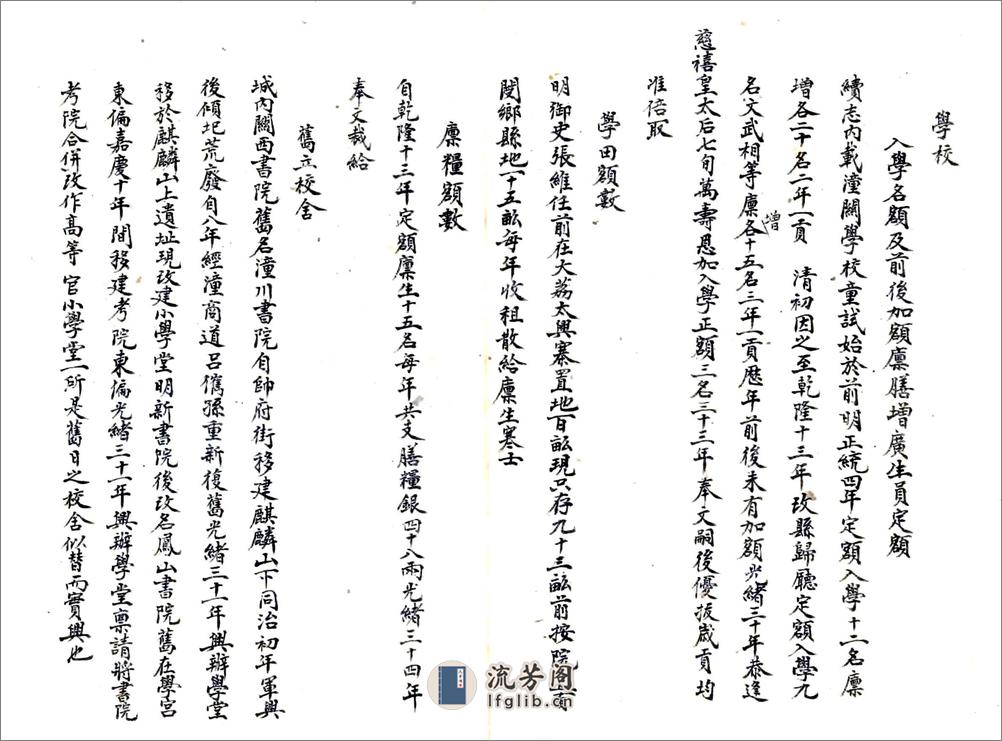 學校
入學名額及前後加額廩膳增廣生員定額
續志內載潼關學校童試始於前明正統四年定額入學十二名廩
增各二十名二年一貢 清初因之至乾隆十三年改縣歸廳定額入學九
名文武相等廩增各十五名三年一貢歷年前後未有加額光緒三十年恭逢
慈禧皇太后七旬萬壽恩加入學正額三名三十三年奉文嗣後優拔歲貢均
准倍取
學田額數
明御史張維任前在大荔太興寨置地百畝現只存九十三畝前按院
閿鄉縣地一十五畝每年收租散給廩生寒士
廩糧額數
自乾隆十三年定額廩生十五名每年共支膳糧銀四十八兩光緒三十四年
奉文裁給
舊立校舍
城內關西書院舊名潼川書院自帥府街移建麒麟山下同治初年軍興
後傾圮荒廢自八年經潼商道呂儁孫重新復舊光緒三十一年興辦學堂
移於麒麟山上遺址現改建小學堂明新書院後改名鳳山書院舊在學宮
東偏嘉慶十年間移建考院東偏光緒三十一年興辦學堂禀請將書院
考院合併改作高等官小學堂一所是舊日之校舍似替而實興也
流芳阁
lfglib.cn